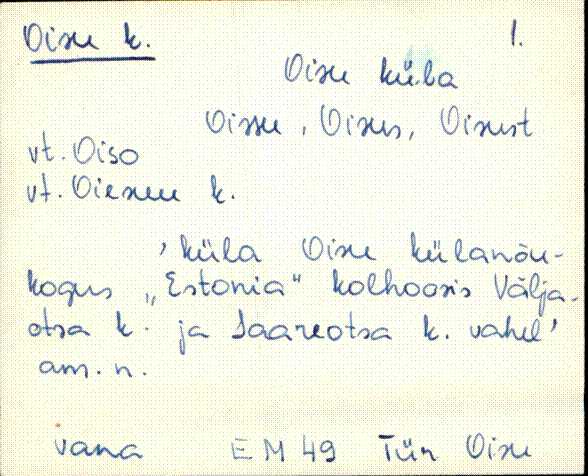 Oisu k. 1.
Oisu küla
Oissu, Oisus, Oisust
vt. Oiso
vt. Oiesuu k.
'küla Oisu külanõu-
kogus „Estonia" kolhoosis Välja-
otsa k. ja Saareotsa k. vahel'
am. n.
vana EM 49 Tür Oisu